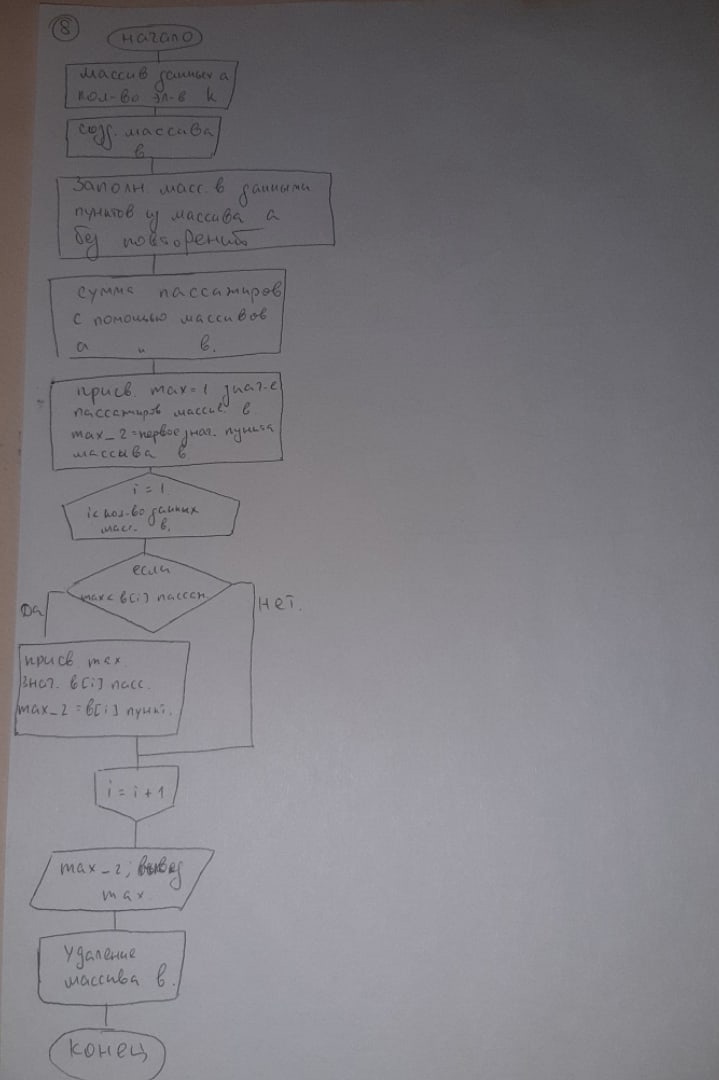 8
начало
массив данных а
кол-во эл-в k
созд. массива
в
Заполн. масс. в данными
пунктов из массива а
без повторений
сумма пассажиров
с помощью массивов
а и в.
присв. max=1 знач-е
пассажиров массив. в
max_2=первое знач. пункта
массыва в
i = 1
i< кол-во данных
масс. в.
если
max< в[i] пассаж.
Да
нет.
присв. max.
знач. в[i] пасс.
max_2 = в[i] пункт.
i = i + 1
max_2;
max.
Удаление
массива в.
конец